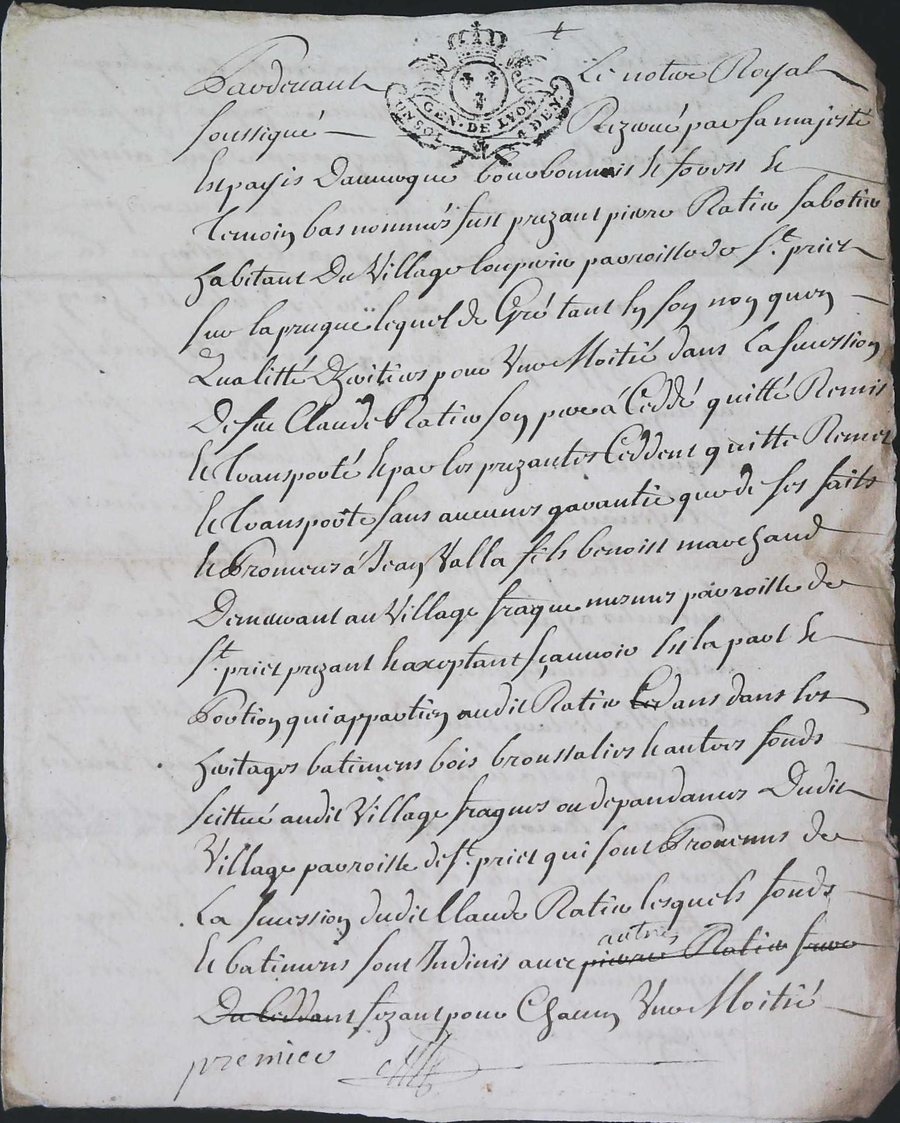 Pardevant Le notre Royal
GEN. DE LYON
UN SOL 4 DEN.
soussigné Rezerué par sa majesté
es pays Dauuergne bourbonnois et forest et
temoin bas nommés fust prezant pierre Ratier sabotier
habitant Du Village loupirie parroisse de St. priet
sur laprugne lequel de Gré tant En son non quen
Qualitté D'heritiers pour Vne Moitié dans La sucession
De feu Claude Ratier son pere à Ceddé quitté Remis
et transporté et par les prezantes Ceddent quitte Remet
et transporte sans aucunes garantie que de ses faits
et Promeus à Jean Valla fils benoist marchand
Demeurant au Village fragne parroisse de
St. priet prezant et axceptant sçauoir Est la part et
Portion qui appartien audit Ratier dans dans les
heritages batimens bois broussalies et autres fonds
scittué audit Village fragnes ou depandances Dudit
Village parroisse de St. priet qui sont Prouenus de
La sucession dudit Claude Ratier lesquels fonds
et batimens sont Indiuis auec autres pierre Ratier frere
Du Ceddant fezant pour Chacun Vne Moitié
premier